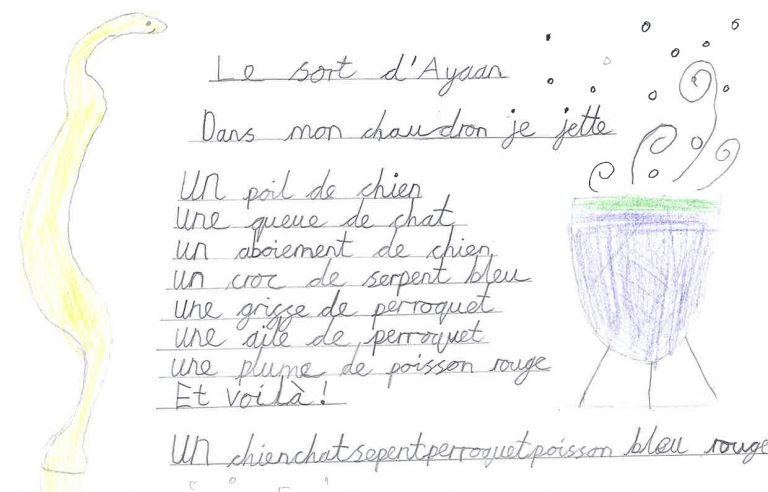 Le sort d'Ayaan
Dans mon chaudron je jette
un poil de chien
une queue de chat
un aboiement de chien
un croc de serpent bleu
une grisse de perroquet
une aile de perroquet
une plume de poisson rouge
Et voilà!
un chienchatsepentperroquetpoisson bleu rouge